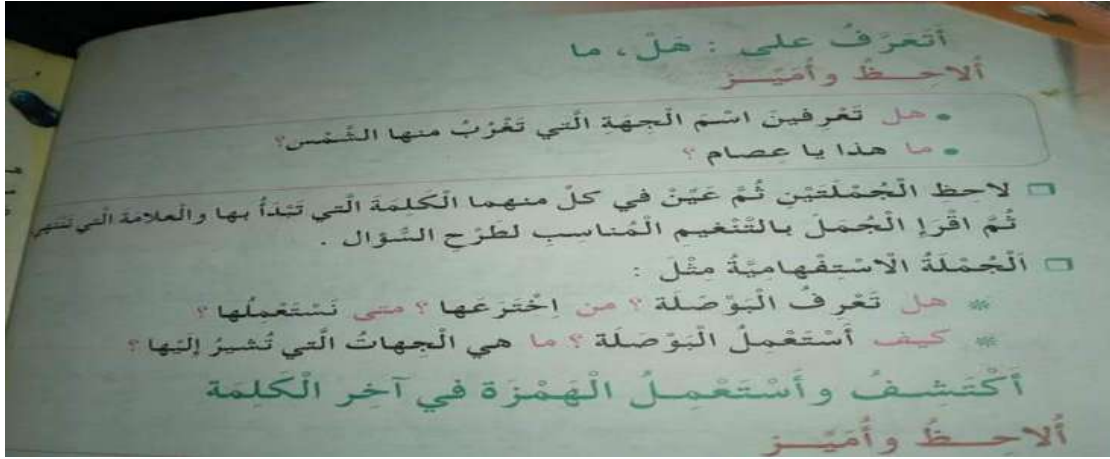 أَتَعَرَّفُ على : هَلْ ، ما
أُلاحِظُ وأُمَيِّز
• هل تَعْرِفينَ اسْمَ الْجِهَةِ الَّتي تَغْرُبُ منها الشَّمْس؟
• ما هذا يا عِصام ؟
□ لاحِظِ الْجُمْلَتَيْنِ ثُمَّ عَيِّنْ في كلّ منهما الْكَلِمَةَ الَّتي تَبْدَأُ بها والْعلامَةَ الَّتي تَنْتَهي
ثُمَّ اقْرَإِ الْجُمَلَ بالتَّنْغيمِ الْمُناسِبِ لطَرْحِ السُّؤال .
□ اَلْجُمْلَةُ الْاسْتِفْهاميَّةُ مِثْلَ :
* هل تَعْرِفُ الْبَوْصَلَة ؟ من اِخْتَرَعَها ؟ متى نَسْتَعْمِلُها ؟
* كيف أَسْتَعْمِلُ الْبَوْصَلَة ؟ ما هي الْجِهاتُ الَّتي تُشيرُ إلَيْها ؟
أَكْتَشِفُ وأَسْتَعْمِلُ الْهَمْزَة في آخِرِ الْكَلِمَة
أُلاحِظُ وأُمَيِّز